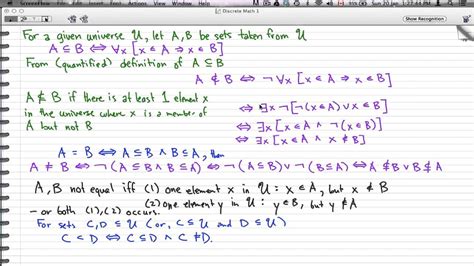 Discrete Math 1
Show Recognition
For a given universe U, let A, B be sets taken from U
A ⊆ B ⟺ ∀x [x ∈ A ⇒ x ∈ B]
From (quantified) definition of A ⊆ B
A ⊈ B ⟺ ¬∀x [x ∈ A ⇒ x ∈ B]
A ⊈ B if there is at least 1 element x
in the universe where x is a member of
A but not B
⟺ ∃x ¬[¬(x ∈ A) ∨ x ∈ B]
⟺ ∃x [x ∈ A ∧ ¬(x ∈ B)]
⟺ ∃x [x ∈ A ∧ x ∉ B]
A = B ⟺ A ⊆ B ∧ B ⊆ A, then
A ≠ B ⟺ ¬(A ⊆ B ∧ B ⊆ A) ⟺ ¬(A ⊆ B) ∨ ¬(B ⊆ A) ⟺ A ⊈ B ∨ B ⊈ A
A, B not equal iff (1) one element x in U : x ∈ A, but x ∉ B
(2) one element y in U : y ∈ B, but y ∉ A
– or both (1), (2) occurs.
For sets C, D ⊆ U (or, C ⊆ U and D ⊆ U)
C ⊂ D ⟺ C ⊆ D ∧ C ≠ D.